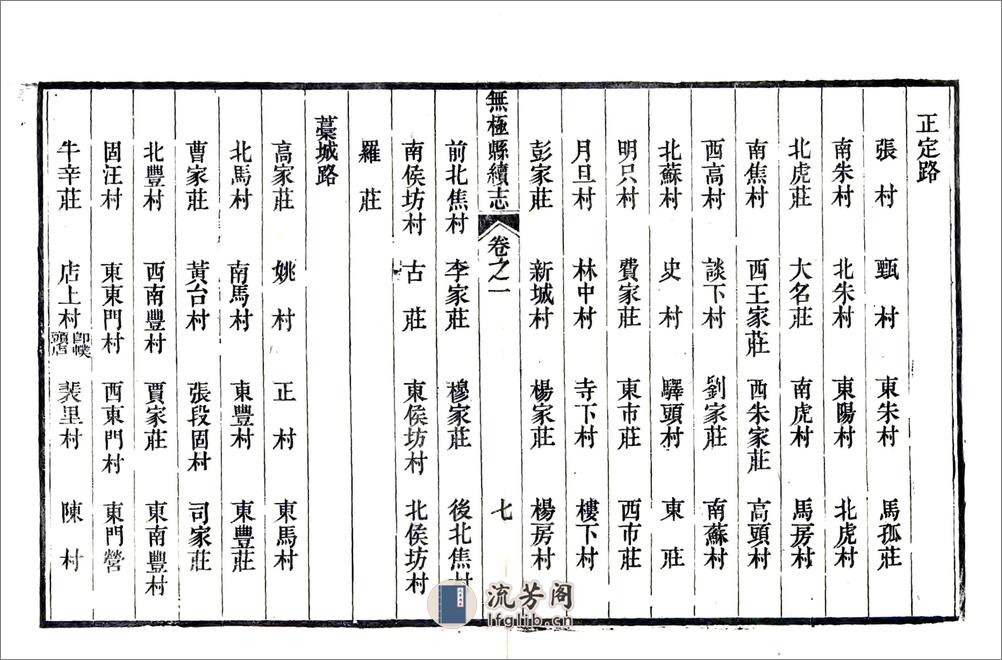 正定路
張村　甄村　東朱村　馬孤莊
南朱村　北朱村　東陽村　北虎村
北虎莊　大名莊　南虎村　馬房村
南焦村　西王家莊　西朱家莊　高頭村
西高村　談下村　劉家莊　南蘇村
北蘇村　史村　驛頭村　東莊
明只村　費家莊　東市莊　西市莊
月旦村　林中村　寺下村　樓下村
彭家莊　新城村　楊家莊　楊房村
無極縣續志　卷之一　七
前北焦村　李家莊　穆家莊　後北焦村
南侯坊村　古莊　東侯坊村　北侯坊村
羅莊
藁城路
高家莊　姚村　正村　東馬村
北馬村　南馬村　東豐村　東豐莊
曹家莊　黃台村　張段固村　司家莊
北豐村　西南豐村　賈家莊　東南豐村
固汪村　東東門村　西東門村　東門營
牛辛莊　店上村卽幞頭店　裴里村　陳村
流芳阁
lfglib.cn